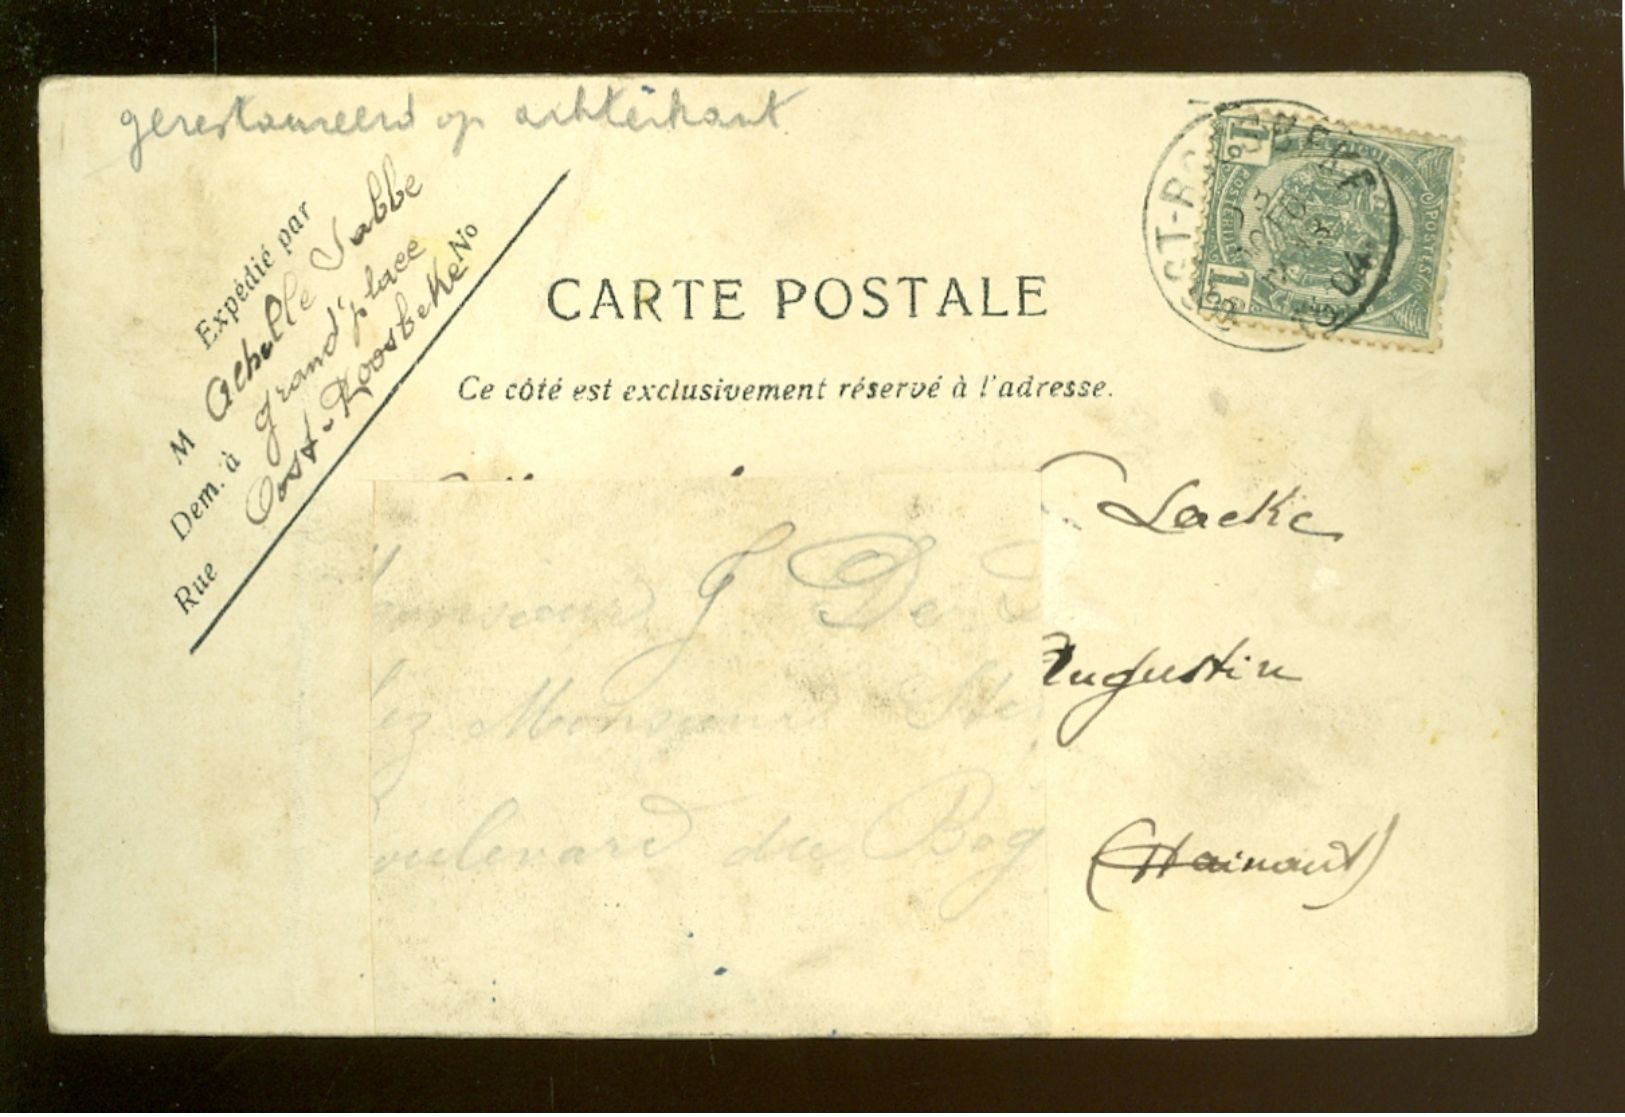 gerestaureerd op achterkant
Expédié par
M Achille Sabbe
Dem. à grand'place
Oost-Roosbeke No
Rue
CARTE POSTALE
Ce côté est exclusivement réservé à l'adresse.
Monsieur J De
Laekc
ez Monsieur Ste
Augustin
oulevard du Bog
(Hainaut)
OOST-ROOSEBEKE
04
1c
1c
BELGIQUE
POSTERIJEN
POSTES